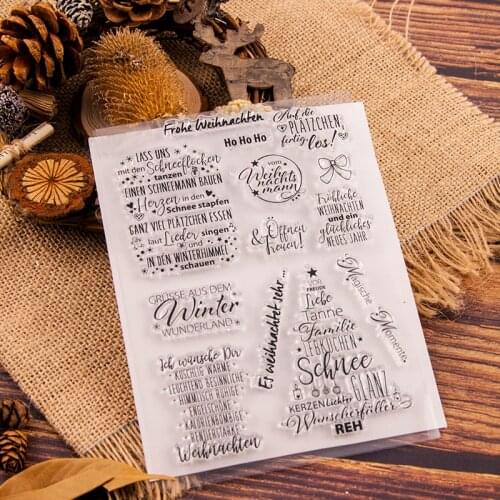 Frohe Weihnachten
Ho Ho Ho
Auf die
PLÄTZCHEN,
fertig
los!
LASS UNS
mit den Schneeflocken
tanzen
EINEN SCHNEEMANN BAUEN
Herzen in den
Schnee stapfen
GANZ VIEL PLÄTZCHEN ESSEN
laut Lieder singen
und
IN DEN WINTERHIMMEL
schauen
vom
Weihnachtsmann
Fröhliche
WEIHNACHTEN
und ein
glückliches
NEUES JAHR
& Öffnen
freuen!
GRÜSSE AUS DEM
Winter
WUNDERLAND
Es weihnachtet sehr...
VOR
FREUDE
Liebe
Tanne
Familie
LEBKUCHEN
Schnee
GLANZ
KERZENLichter
Wunscherfüller
REH
Magische
Momente
Ich wünsche Dir
KUSCHLIG WARME
LEUCHTEND BESINNLICHE
HIMMLISCH RUHIGE
ENGELSCHÖNE
KALORIENBOMBIGE
Weihnachten